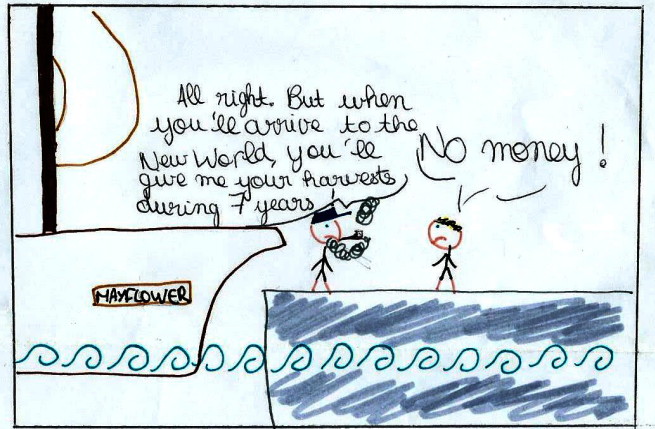 All right. But when
you'll arrive to the
New World, you'll
give me your harvests
during 7 years!
No money!
MAYFLOWER